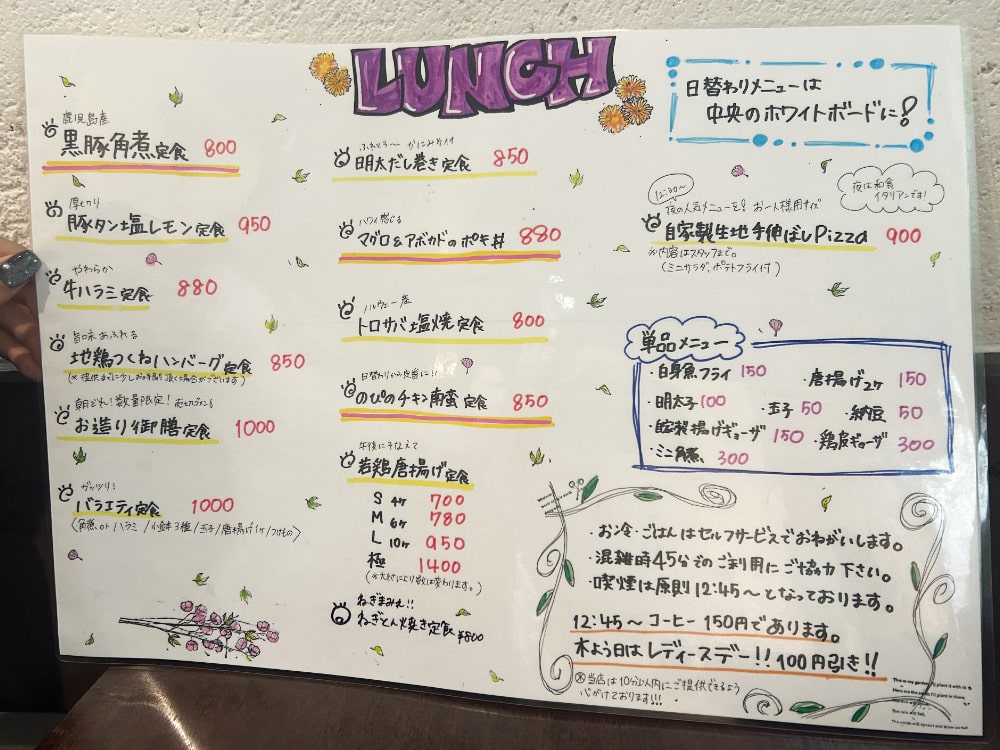 LUNCH
鹿児島産
黒豚角煮定食 800
厚切り
豚タン塩レモン定食 950
やわらか
牛ハラミ定食 880
旨味あふれる
地鶏つくねハンバーグ定食 850
(※提供までに少しお時間頂く場合がございます)
朝どれ!数量限定!
お造り御膳定食 1000
ガッツリ!
バラエティ定食 1000
(角煮 or ハラミ/小鉢3種/玉子/唐揚げ1ヶ/つけもの)
ふわとろ〜 かにみそ付
明太だし巻き定食 850
ハワイ感じる
マグロ&アボカドのポキ丼 880
ノルウェー産
トロサバ塩焼定食 800
日替わりから定番に!!
のびのチキン南蛮定食 850
午後にそなえて
若鶏唐揚げ定食
S 4ヶ 700
M 6ヶ 780
L 10ヶ 950
極 1400
(※大きさにより数は変わります。)
ねぎまみれ!!
ねぎとん焼き定食 ¥800
日替わりメニューは
中央のホワイトボードに!
夜は和食
イタリアンです!
12:30〜
夜の人気メニューを! お一人様用サイズ
自家製生地手伸ばしPizza 900
※内容はスタッフまで。
(ミニサラダ、ポテトフライ付)
単品メニュー
・白身魚フライ 150 ・唐揚げ2ヶ 150
・明太子 100 ・玉子 50 ・納豆 50
・自家製揚げギョーザ 150 ・鶏皮ギョーザ 300
・ミニ角煮 300
・お冷・ごはんはセルフサービスでおねがいします。
・混雑時45分でのご利用にご協力下さい。
・喫煙は原則12:45〜となっております。
12:45〜 コーヒー 150円であります。
木よう日はレディースデー!! 100円引き!!
※当店は10分以内にご提供できるよう
心がけております!!!